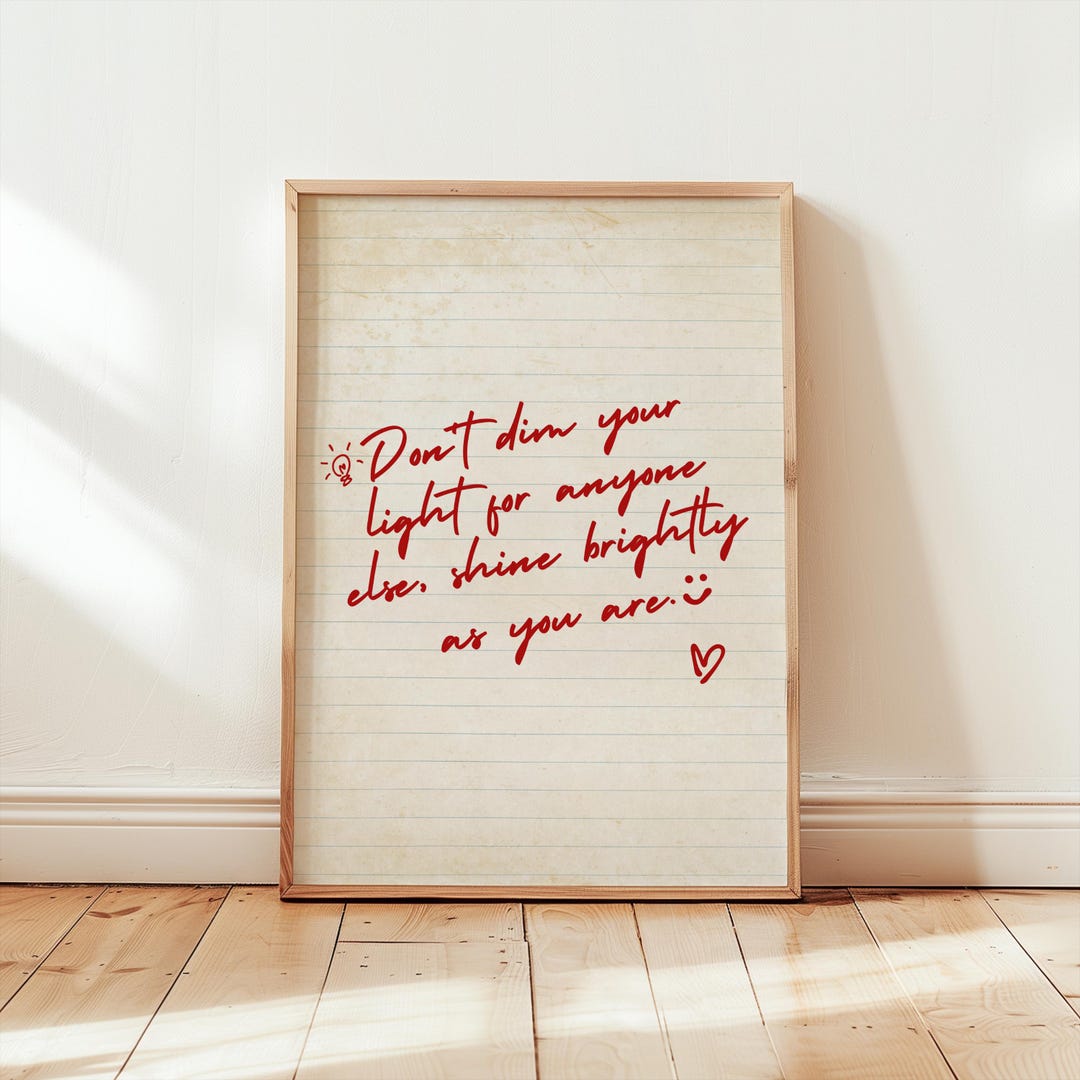 Don't dim your
light for anyone
else, shine brightly
as you are.